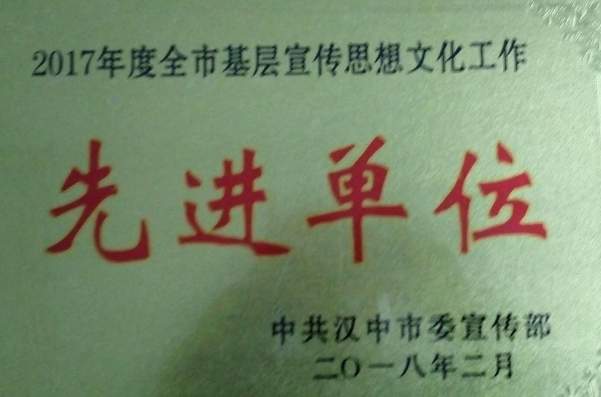 2017年度全市基层宣传思想文化工作
先进单位
中共汉中市委宣传部
二〇一八年二月